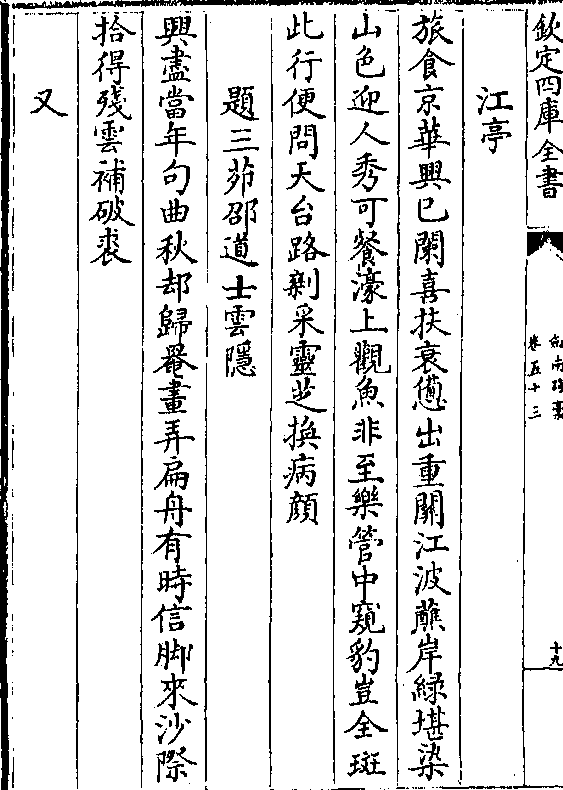 欽定四庫全書
劍南詩稾
卷五十三
十九
江亭
旅食京華興已闌喜扶衰憊出重關江波蘸岸綠堪染
山色迎人秀可餐濠上觀魚非至樂管中窺豹豈全斑
此行便問天台路剩采靈芝換病顔
題三茆邵道士雲隱
興盡當年句曲秋却歸罨畫弄扁舟有時信脚來沙際
拾得殘雲補破裘
又